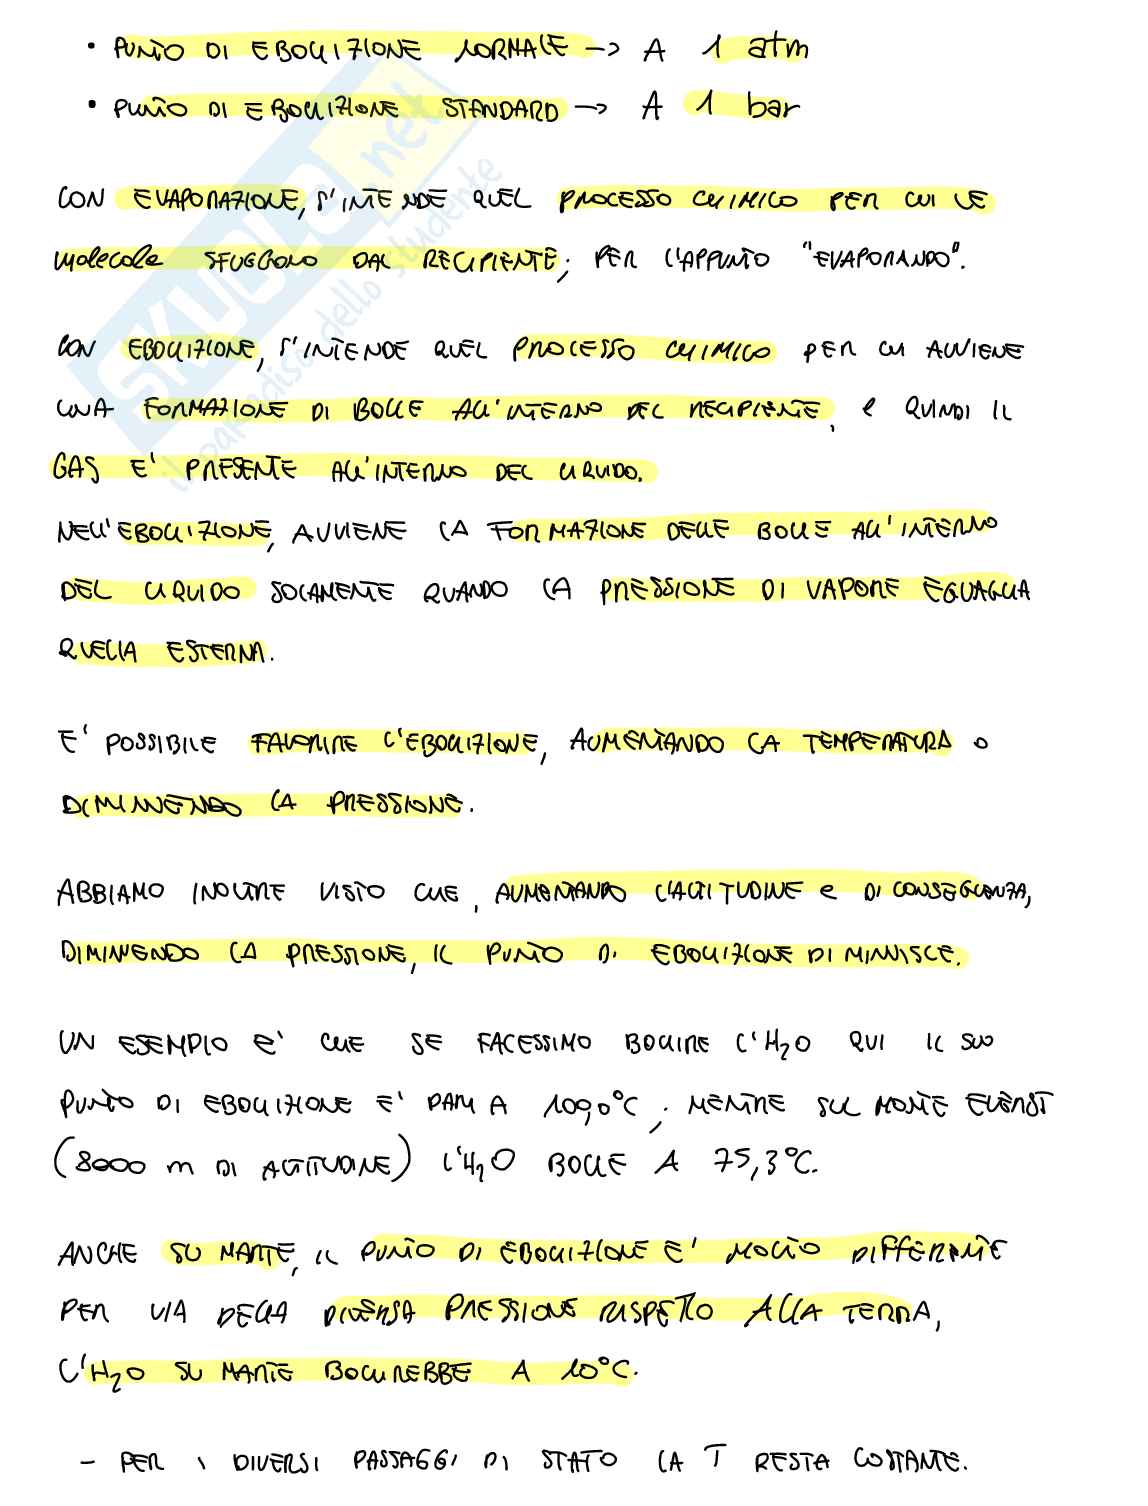 • PUNTO DI EBOLLIZIONE NORMALE -> A 1 atm
• PUNTO DI EBOLLIZIONE STANDARD -> A 1 bar
CON EVAPORAZIONE, S'INTENDE QUEL PROCESSO CHIMICO PER CUI LE
molecole SFUGGONO DAL RECIPIENTE; PER L'APPUNTO "EVAPORANDO".
CON EBOLLIZIONE, S'INTENDE QUEL PROCESSO CHIMICO PER CUI AVVIENE
UNA FORMAZIONE DI BOLLE ALL'INTERNO DEL RECIPIENTE, e QUINDI IL
GAS E' PRESENTE ALL'INTERNO DEL LIQUIDO.
NELL'EBOLLIZIONE, AVVIENE LA FORMAZIONE DELLE BOLLE ALL'INTERNO
DEL LIQUIDO SOLAMENTE QUANDO LA PRESSIONE DI VAPORE EGUAGLIA
QUELLA ESTERNA.
E' POSSIBILE FAVORIRE L'EBOLLIZIONE, AUMENTANDO LA TEMPERATURA O
DIMINUENDO LA PRESSIONE.
ABBIAMO INOLTRE VISTO CHE, AUMENTANDO L'ALTITUDINE e DI CONSEGUENZA,
DIMINUENDO LA PRESSIONE, IL PUNTO DI EBOLLIZIONE DIMINUISCE.
UN ESEMPIO E' CHE SE FACESSIMO BOLLIRE L'H₂O QUI IL SUO
PUNTO DI EBOLLIZIONE E' PARI A 100,0°C; MENTRE SUL MONTE EVEREST
(8000 m DI ALTITUDINE) L'H₂O BOLLE A 75,3°C.
ANCHE SU MARTE, IL PUNTO DI EBOLLIZIONE E' MOLTO DIFFERENTE
PER VIA DELLA DIVERSA PRESSIONE RISPETTO ALLA TERRA,
L'H₂O SU MARTE BOLLIREBBE A 10°C.
- PER I DIVERSI PASSAGGI DI STATO LA T RESTA COSTANTE.
SKUOLA.net
il paradiso dello studente